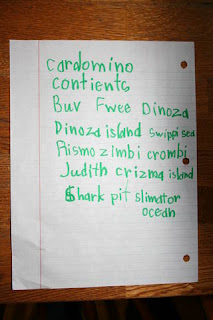 Cardomino
contients
Buv Fwee Dinoza
Dinoza island swippi sea
Aismozimbi crombi
Judith crizma island
Shark pit slimator
ocean